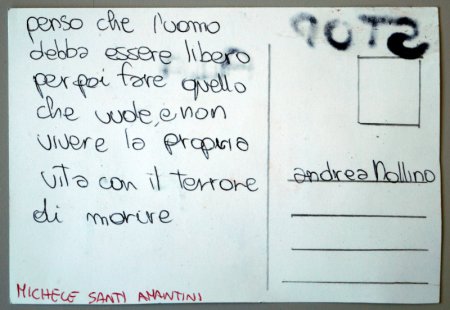 penso che l'uomo
debba essere libero
per poi fare quello
che vuole, e non
vivere la propria
vita con il terrore
di morire
STOP
andrea Nollino
MICHELE SANTI AMANTINI